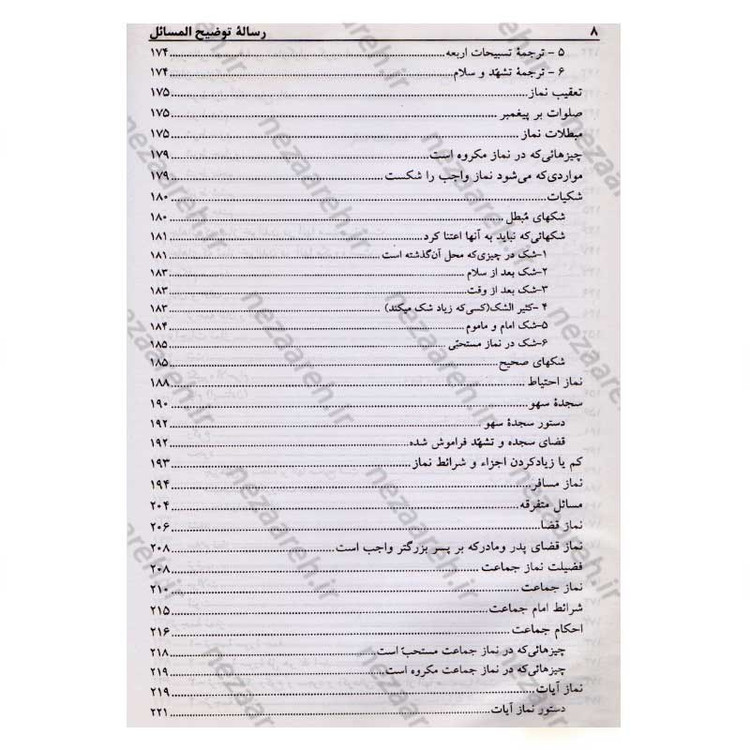 ۸ رسالهٔ توضیح المسائل
۵ - ترجمهٔ تسبیحات اربعه ۱۷۴
۶ - ترجمهٔ تشهّد و سلام ۱۷۴
تعقیب نماز ۱۷۵
صلوات بر پیغمبر ۱۷۵
مبطلات نماز ۱۷۵
چیزهائی‌که در نماز مکروه است ۱۷۹
مواردی‌که می‌شود نماز واجب را شکست ۱۷۹
شکیات ۱۸۰
شکهای مُبطل ۱۸۰
شکهائی‌که نباید به آنها اعتنا کرد ۱۸۱
۱-شک در چیزی‌که محل آن‌گذشته است ۱۸۱
۲-شک بعد از سلام ۱۸۳
۳-شک بعد از وقت ۱۸۳
۴ -کثیر الشک(کسی‌که زیاد شک میکند) ۱۸۳
۵-شک امام و ماموم ۱۸۴
۶-شک در نماز مستحبّی ۱۸۵
شکهای صحیح ۱۸۵
نماز احتیاط ۱۸۸
سجدهٔ سهو ۱۹۰
دستور سجدهٔ سهو ۱۹۲
قضای سجده و تشهّد فراموش شده ۱۹۲
کم یا زیادکردن اجزاء و شرائط نماز ۱۹۳
نماز مسافر ۱۹۴
مسائل متفرقه ۲۰۴
نماز قضا ۲۰۶
نماز قضای پدر ومادرکه بر پسر بزرگتر واجب است ۲۰۸
فضیلت نماز جماعت ۲۰۸
نماز جماعت ۲۱۰
شرائط امام جماعت ۲۱۵
احکام جماعت ۲۱۶
چیزهائی‌که در نماز جماعت مستحبّ است ۲۱۸
چیزهائی‌که در نماز جماعت مکروه است ۲۱۹
نماز آیات ۲۱۹
دستور نماز آیات ۲۲۱
nezaareh.ir